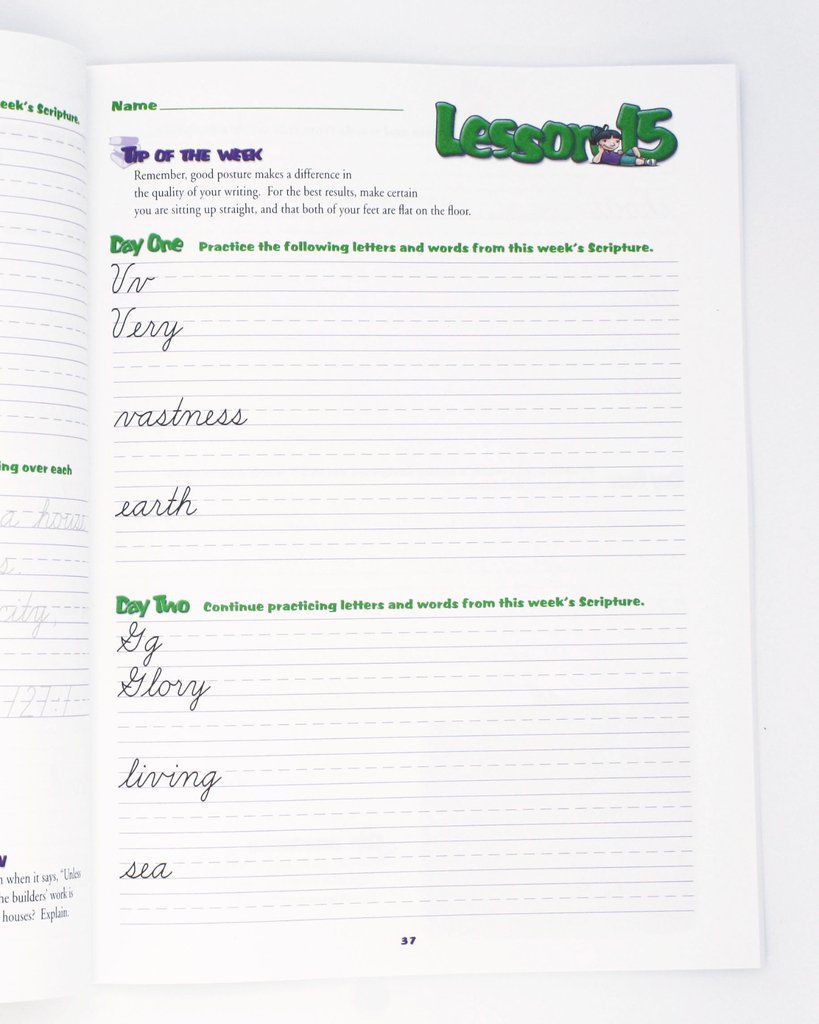 eek's Scripture.
ing over each
a house
s.
city,
127:1
n when it says, "Unless
he builders' work is
houses? Explain.
Name
Lesson 15
Tip of the Week
Remember, good posture makes a difference in
the quality of your writing. For the best results, make certain
you are sitting up straight, and that both of your feet are flat on the floor.
Day One Practice the following letters and words from this week's Scripture.
Vv
Very
vastness
earth
Day Two Continue practicing letters and words from this week's Scripture.
Gg
Glory
living
sea
37